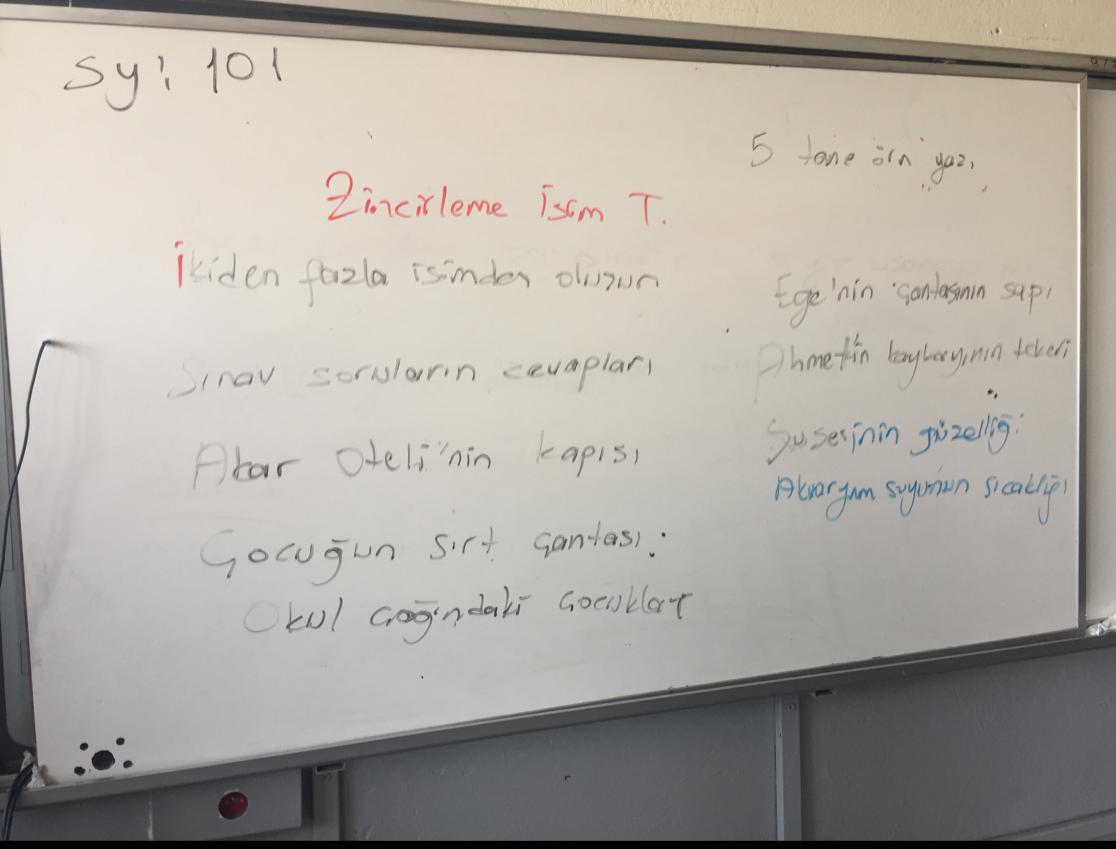 sy: 101
5 tane örn yaz,
Zincirleme İsim T.
İkiden fazla isimden oluşun
Sınav soruların cevapları
Akar Oteli'nin kapısı
Çocuğun sırt çantası.
Okul çağındaki çocuklar
Ege'nin çantasının sapı
Ahmet'in kaykayının tekeri
Su sesinin güzelliği
Akvaryum suyunun sıcaklığı